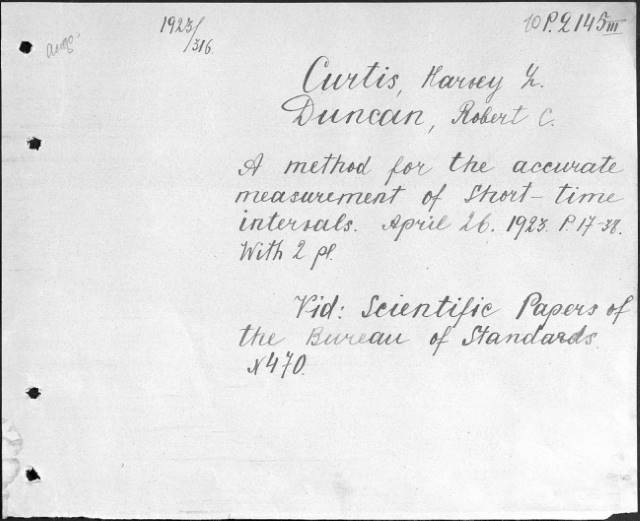 1923/316
10 P.2145 III
Curtis, Harvey L.
Duncan, Robert C.
A method for the accurate
measurement of Short-time
intervals. April 26. 1923. P. 17-38.
With 2 pl.
Vid: Scientific Papers of
the Bureau of Standards
N 470.